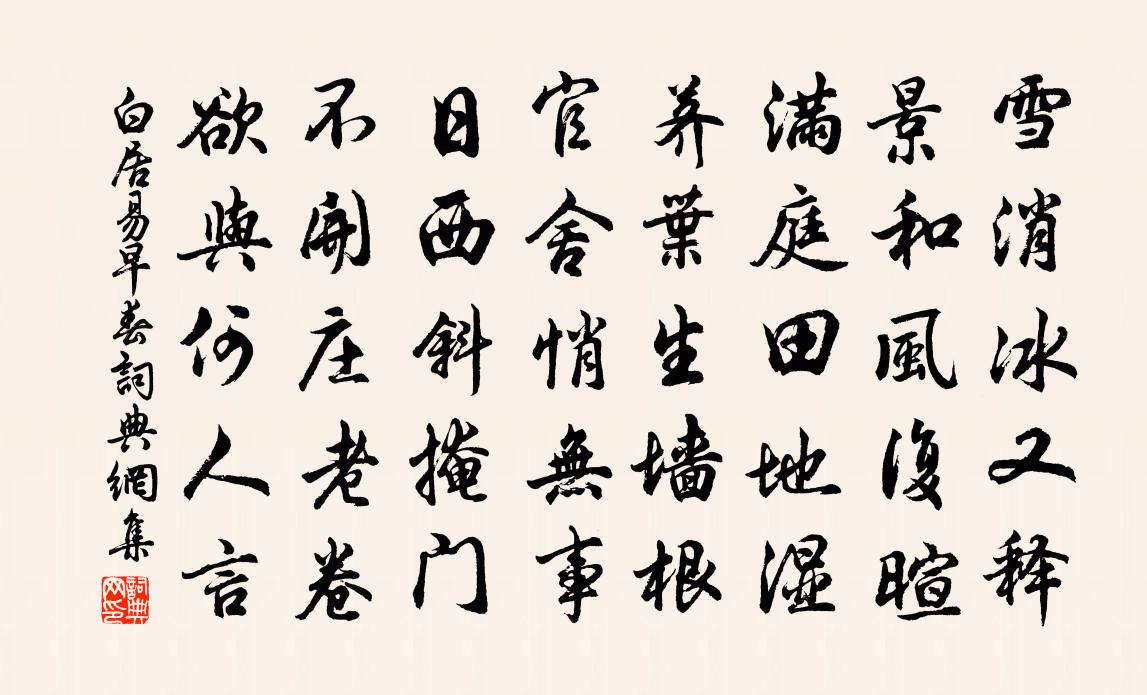 雪消冰又释
景和風復暄
满庭田地湿
荞葉生墙根
官舍悄無事
日西斜掩门
不開庄老卷
欲與何人言
白居易早春詞典網集
詞典网印